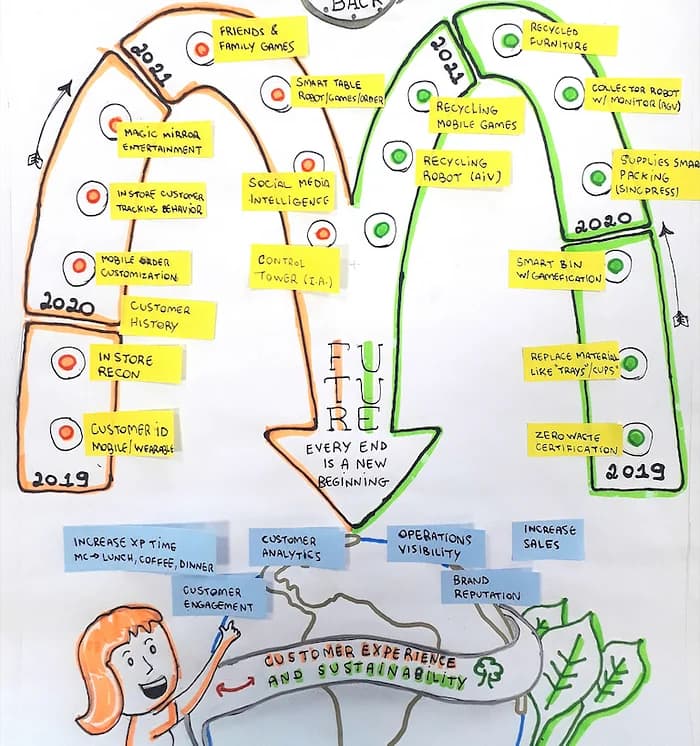 BACK
FRIENDS &
FAMILY GAMES
2021
SMART TABLE
ROBOT/GAMES/ORDER
MAGIC MIRROR
ENTERTAINMENT
SOCIAL MEDIA
INTELLIGENCE
IN STORE CUSTOMER
TRACKING BEHAVIOR
CONTROL
TOWER (I.A.)
MOBILE ORDER
CUSTOMIZATION
2020
CUSTOMER
HISTORY
IN STORE
RECON
CUSTOMER ID
MOBILE/WEARABLE
2019
RECYCLED
FURNITURE
2021
COLLECTOR ROBOT
W/ MONITOR (AGV)
RECYCLING
MOBILE GAMES
RECYCLING
ROBOT (AIV)
SUPPLIES SMAR
PACKING
(SINCPRESS)
2020
SMART BIN
W/GAMEFICATION
REPLACE MATERIAL
LIKE "TRAYS"/CUPS"
ZERO WASTE
CERTIFICATION
2019
FU
TU
RE
EVERY END
IS A NEW
BEGINNING
INCREASE XP TIME
MC→LUNCH, COFFEE, DINNER
CUSTOMER
ANALYTICS
OPERATIONS
VISIBILITY
INCREASE
SALES
CUSTOMER
ENGAGEMENT
BRAND
REPUTATION
CUSTOMER EXPERIENCE
AND SUSTAINABILITY